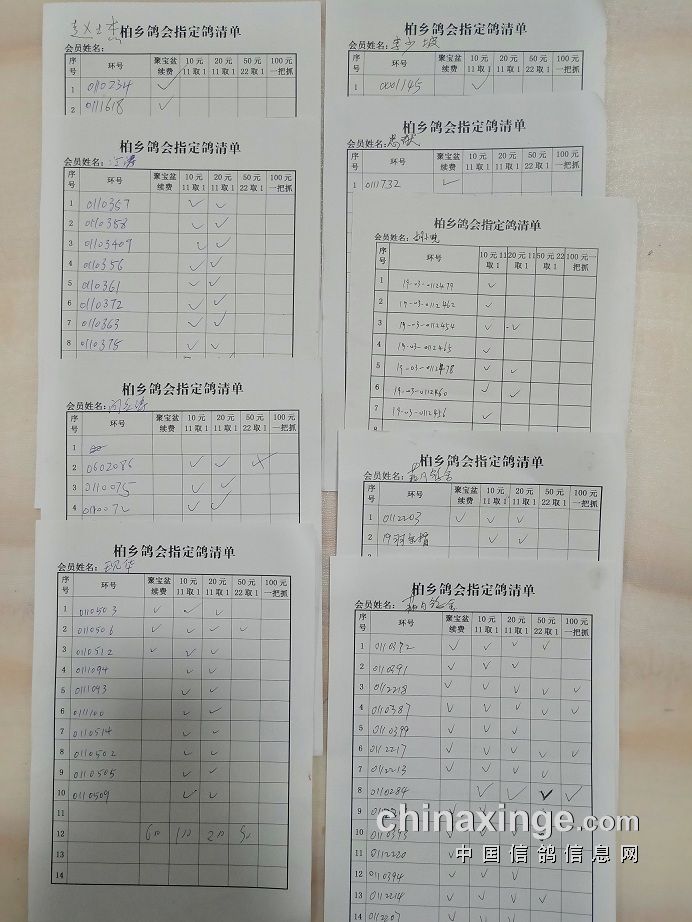 柏乡鸽会指定鸽清单
会员姓名:
序号 环号 聚宝盆续费 10元11取1 20元11取1 50元22取1 100元一把抓
1 0110234 ✓
2 0111618 ✓
柏乡鸽会指定鸽清单
会员姓名:
序号 环号 聚宝盆续费 10元11取1 20元11取1 50元22取1 100元一把抓
1 0110357 ✓ ✓
2 0110358 ✓ ✓
3 01103409 ✓ ✓
4 0110356 ✓ ✓
5 0110361 ✓ ✓
6 0110372 ✓ ✓
7 0110363 ✓ ✓
8 0110375 ✓ ✓
柏乡鸽会指定鸽清单
会员姓名:
序号 环号 聚宝盆续费 10元11取1 20元11取1 50元22取1 100元一把抓
1
2 0602086 ✓ ✓
3 0110075 ✓ ✓
4 0110072 ✓ ✓
柏乡鸽会指定鸽清单
会员姓名:
序号 环号 聚宝盆续费 10元11取1 20元11取1 50元22取1 100元一把抓
1 0110503 ✓ ✓ ✓
2 0110506 ✓ ✓ ✓ ✓
3 0110512 ✓ ✓ ✓
4 0111094 ✓ ✓
5 0111093 ✓ ✓
6 0111100 ✓ ✓
7 0110514 ✓ ✓
8 0110502 ✓ ✓
9 0110505 ✓ ✓
10 0110509 ✓ ✓
11
12
13
14
柏乡鸽会指定鸽清单
会员姓名:
序号 环号 聚宝盆续费 10元11取1 20元11取1 50元22取1 100元一把抓
1 0001145 ✓
柏乡鸽会指定鸽清单
会员姓名:
序号 环号 聚宝盆续费 10元11取1 20元11取1 50元22取1 100元一把抓
1 0111732 ✓
柏乡鸽会指定鸽清单
会员姓名:
序号 环号 10元11取1 20元11取1 50元22取1 100元一把抓
1 19-03-0112479 ✓
2 19-03-0112462 ✓
3 19-03-0112454 ✓ ✓
4 19-03-0112465 ✓
5 19-03-0112478 ✓ ✓
6 19-03-0112460 ✓ ✓
7 19-03-0112456 ✓
柏乡鸽会指定鸽清单
会员姓名:
序号 环号 聚宝盆续费 10元11取1 20元11取1 50元22取1 100元一把抓
1 0112203 ✓ ✓ ✓
2 ✓ ✓
柏乡鸽会指定鸽清单
会员姓名:
序号 环号 聚宝盆续费 10元11取1 20元11取1 50元22取1 100元一把抓
1 0110392 ✓ ✓ ✓ ✓
2 0110391 ✓ ✓ ✓
3 0112218 ✓ ✓ ✓ ✓ ✓
4 0110387 ✓ ✓ ✓ ✓ ✓
5 0110399 ✓ ✓ ✓
6 0112217 ✓ ✓ ✓ ✓ ✓
7 0112213 ✓ ✓ ✓ ✓ ✓
8 0110284 ✓ ✓ ✓ ✓
9
10
11 0112220 ✓ ✓ ✓
12 0110394 ✓ ✓ ✓
13 0112214 ✓ ✓ ✓ ✓ ✓
14 0112207
chinaxinge.com
中国信鸽信息网